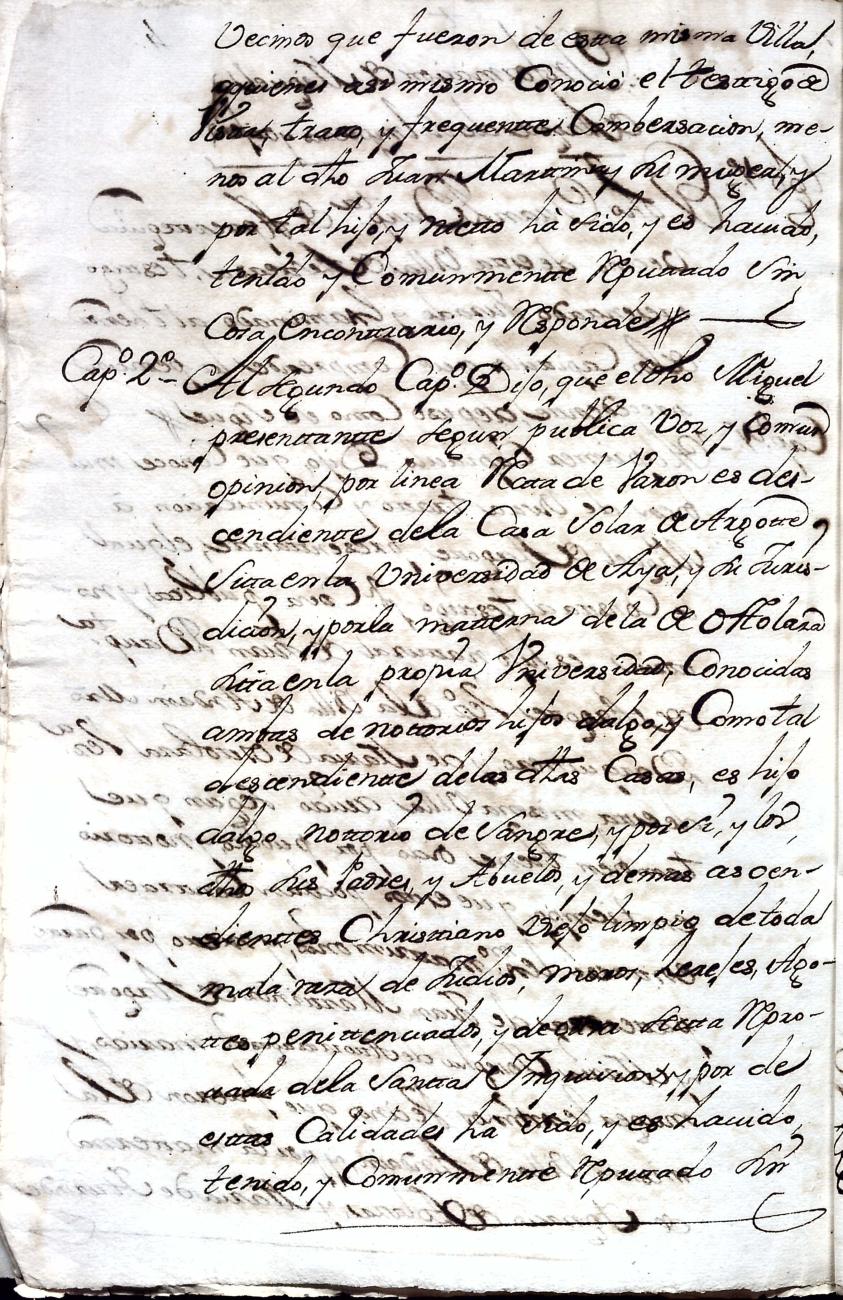 Vecinos que fueron de esta misma Villa,
aquienes asi mismo Conoció el testigo de
Vista, tratto, y frequentte Combersacion, me-
nos al dho Juan Martinez y su muger, y
por tal hijo, y nietto há sido, y es hauido,
tenido y Comunmentte Reputtado sin
Cosa, encontrario, y Responde
Capº. 2º. Al segundo Capº. Dijo, que el dho Miguel
presentantte segun publica Voz, y Comun
opinion, por linea Recta de Varon es des-
cendientte dela Casa Solar de Argotte
Sita en la Universidad de Aya, y su Juris-
dicion, y porla matterna dela de Ottolara
sita en la propia Vniversidad, Conocidas
ambas de nottorios hijos dalgo, y Como tal
descendientte delas dhas Casas, es hijo
dalgo nottorio de Sangre, y por si, y los
dhos sus Padres, y Abuelos, y demas ascen-
dienttes Christtiano Viejo limpio de toda
mala raza de Judios, moros, Agо-
ttes penittenciados, y de otra Secta Repro-
uada dela Santta Inquisicion, y por de
estas Calidades há sido, y es hauido,
tenido, y Comunmentte Reputtado sin